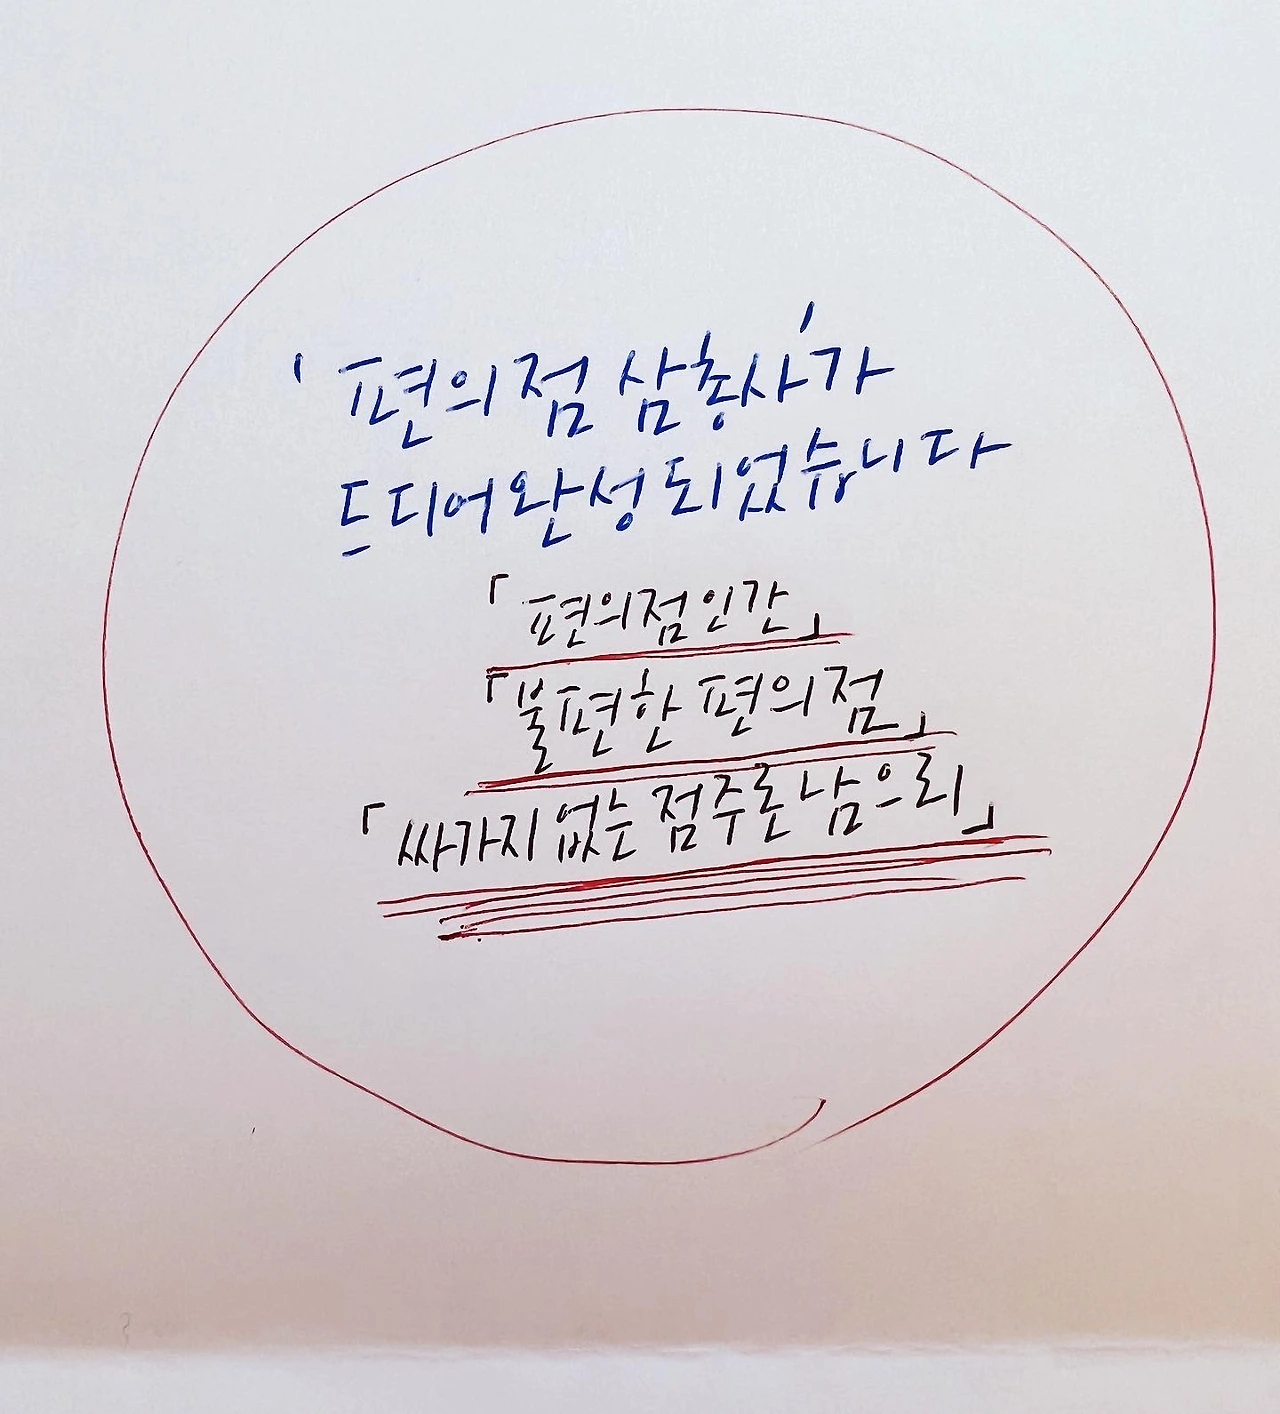 '편의점 삼총사'가
드디어 완성되었습니다
「편의점 인간」
「불편한 편의점」
「싸가지 없는 점주론 남으리」